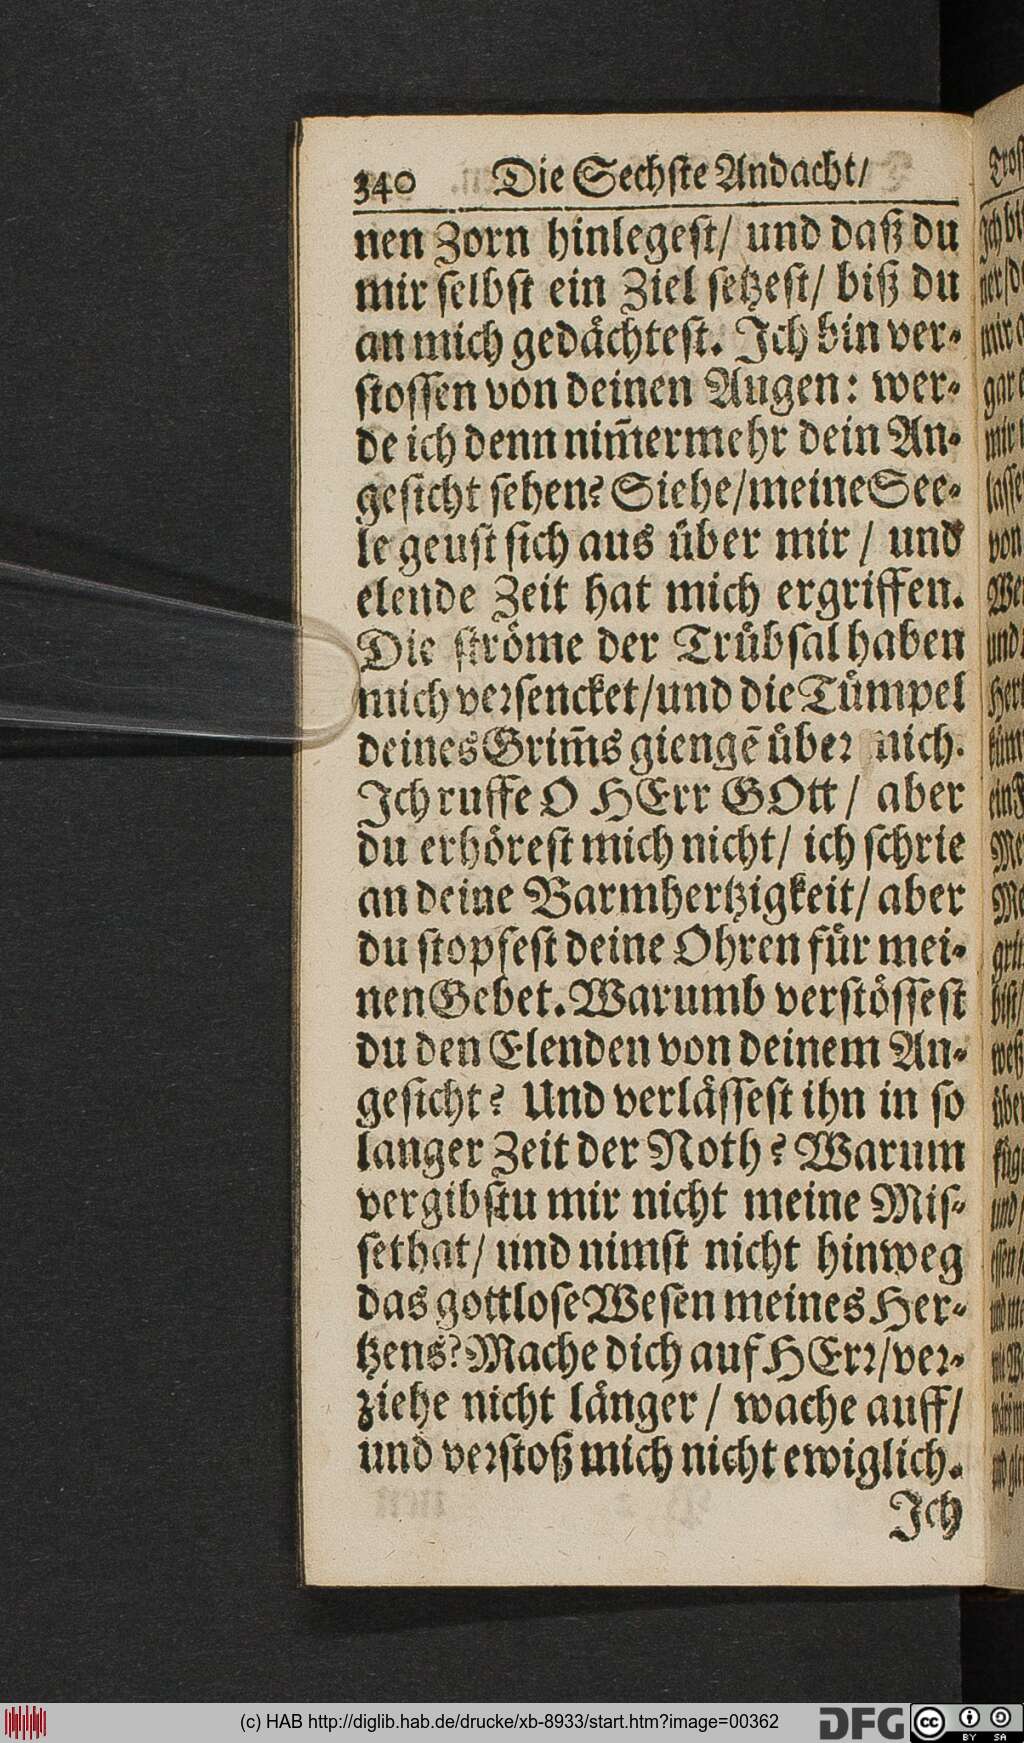 340 Die Sechste Andacht/
nen Zorn hinlegest/ und daß du
mir selbst ein Ziel setzest/ biß du
an mich gedåchtest. Ich bin ver-
stossen von deinen Augen: wer-
de ich denn nim̄ermehr dein An-
gesicht sehen? Siehe/meine See-
le geust sich aus über mir / und
elende Zeit hat mich ergriffen.
Die ströme der Trübsal haben
mich versencket/und die Tümpel
deines Grim̄s giengē über mich.
Ich ruffe O HErr GOtt / aber
du erhörest mich nicht/ ich schrie
an deine Barmhertzigkeit/ aber
du stopfest deine Ohren für mei-
nen Gebet. Warumb verstössest
du den Elenden von deinem An-
gesicht? Und verlåssest ihn in so
langer Zeit der Noth? Warum
vergibstu mir nicht meine Mis-
sethat/ und nimst nicht hinweg
das gottlose Wesen meines Her-
tzens? Mache dich auf HErr/ver-
ziehe nicht långer / wache auff/
und verstoß mich nicht ewiglich.
Ich
(c) HAB http://diglib.hab.de/drucke/xb-8933/start.htm?image=00362
DFG
cc BY SA